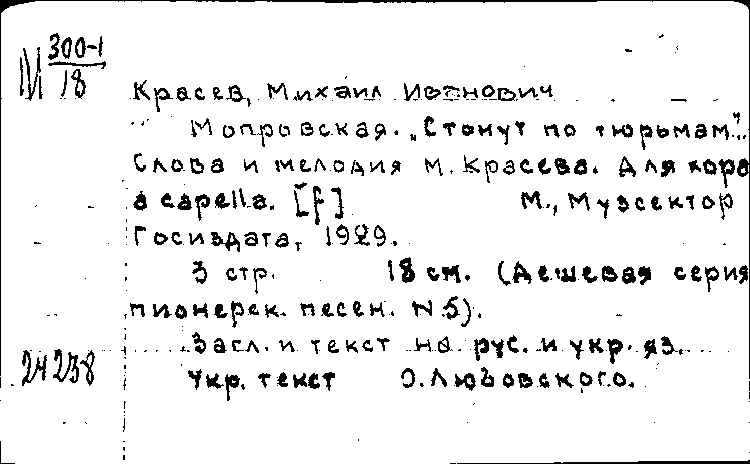 М 300-1
18
Красев, Михаил Иванович
Мопровская. „Стонут по тюрьмам".
Слова и мелодия М. Красева. Для хора
a capella. [f] М., Музсектор
Госиздата, 1929.
3 стр. 18 см. (Дешевая серия
пионерск. песен. N 5).
Загл. и текст на рус. и укр. яз.
Укр. текст О. Любовского.
24238